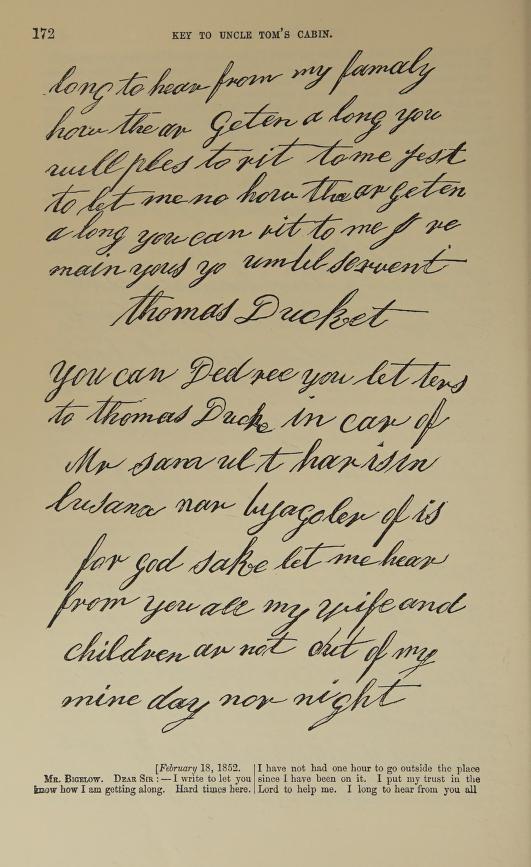 172
KEY TO UNCLE TOM'S CABIN.
long to hear from my famaly
how the ar Geten a long you
will ples to rit to me jest
to let me no how the ar geten
a long you can rit to me I re
main yours yo umbil servent
thomas Ducket
You can Ded rec you let ters
to thomas Ducke in car of
Mr samuel t harisin
lusana nar byagoler of is
for god sake let me hear
from you all my wife and
children ar not out of my
mine day nor night
[February 18, 1852.
MR. BIGELOW. DEAR SIR:—I write to let you
know how I am getting along. Hard times here.
I have not had one hour to go outside the place
since I have been on it. I put my trust in the
Lord to help me. I long to hear from you all